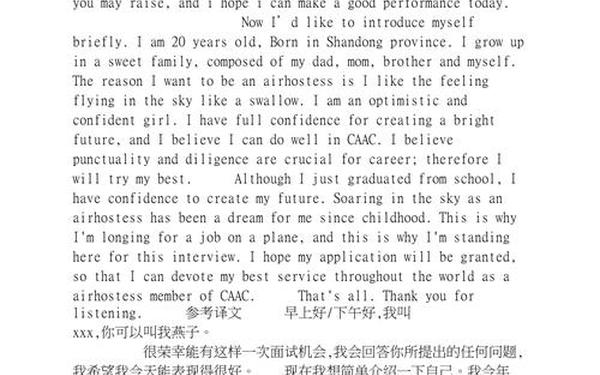 you may raise, and i hope i can make a good performance today.
Now I’d like to introduce myself
briefly. I am 20 years old, Born in Shandong province. I grow up
in a sweet family, composed of my dad, mom, brother and myself.
The reason I want to be an airhostess is I like the feeling
flying in the sky like a swallow. I am an optimistic and
confident girl. I have full confidence for creating a bright
future, and I believe I can do well in CAAC. I believe
punctuality and diligence are crucial for career; therefore I
will try my best. Although I just graduated from school, I
have confidence to create my future. Soaring in the sky as an
airhostess has been a dream for me since childhood. This is why
I'm longing for a job on a plane, and this is why I'm standing
here for this interview. I hope my application will be granted,
so that I can devote my best service throughout the world as a
airhostess member of CAAC. That's all. Thank you for
listening. 参考译文 早上好/下午好,我叫
xxx,你可以叫我燕子。
很荣幸能有这样一次面试机会,我会回答你所提出的任何问题,
我希望我今天能表现得很好。 现在我想简单介绍一下自己。我今年